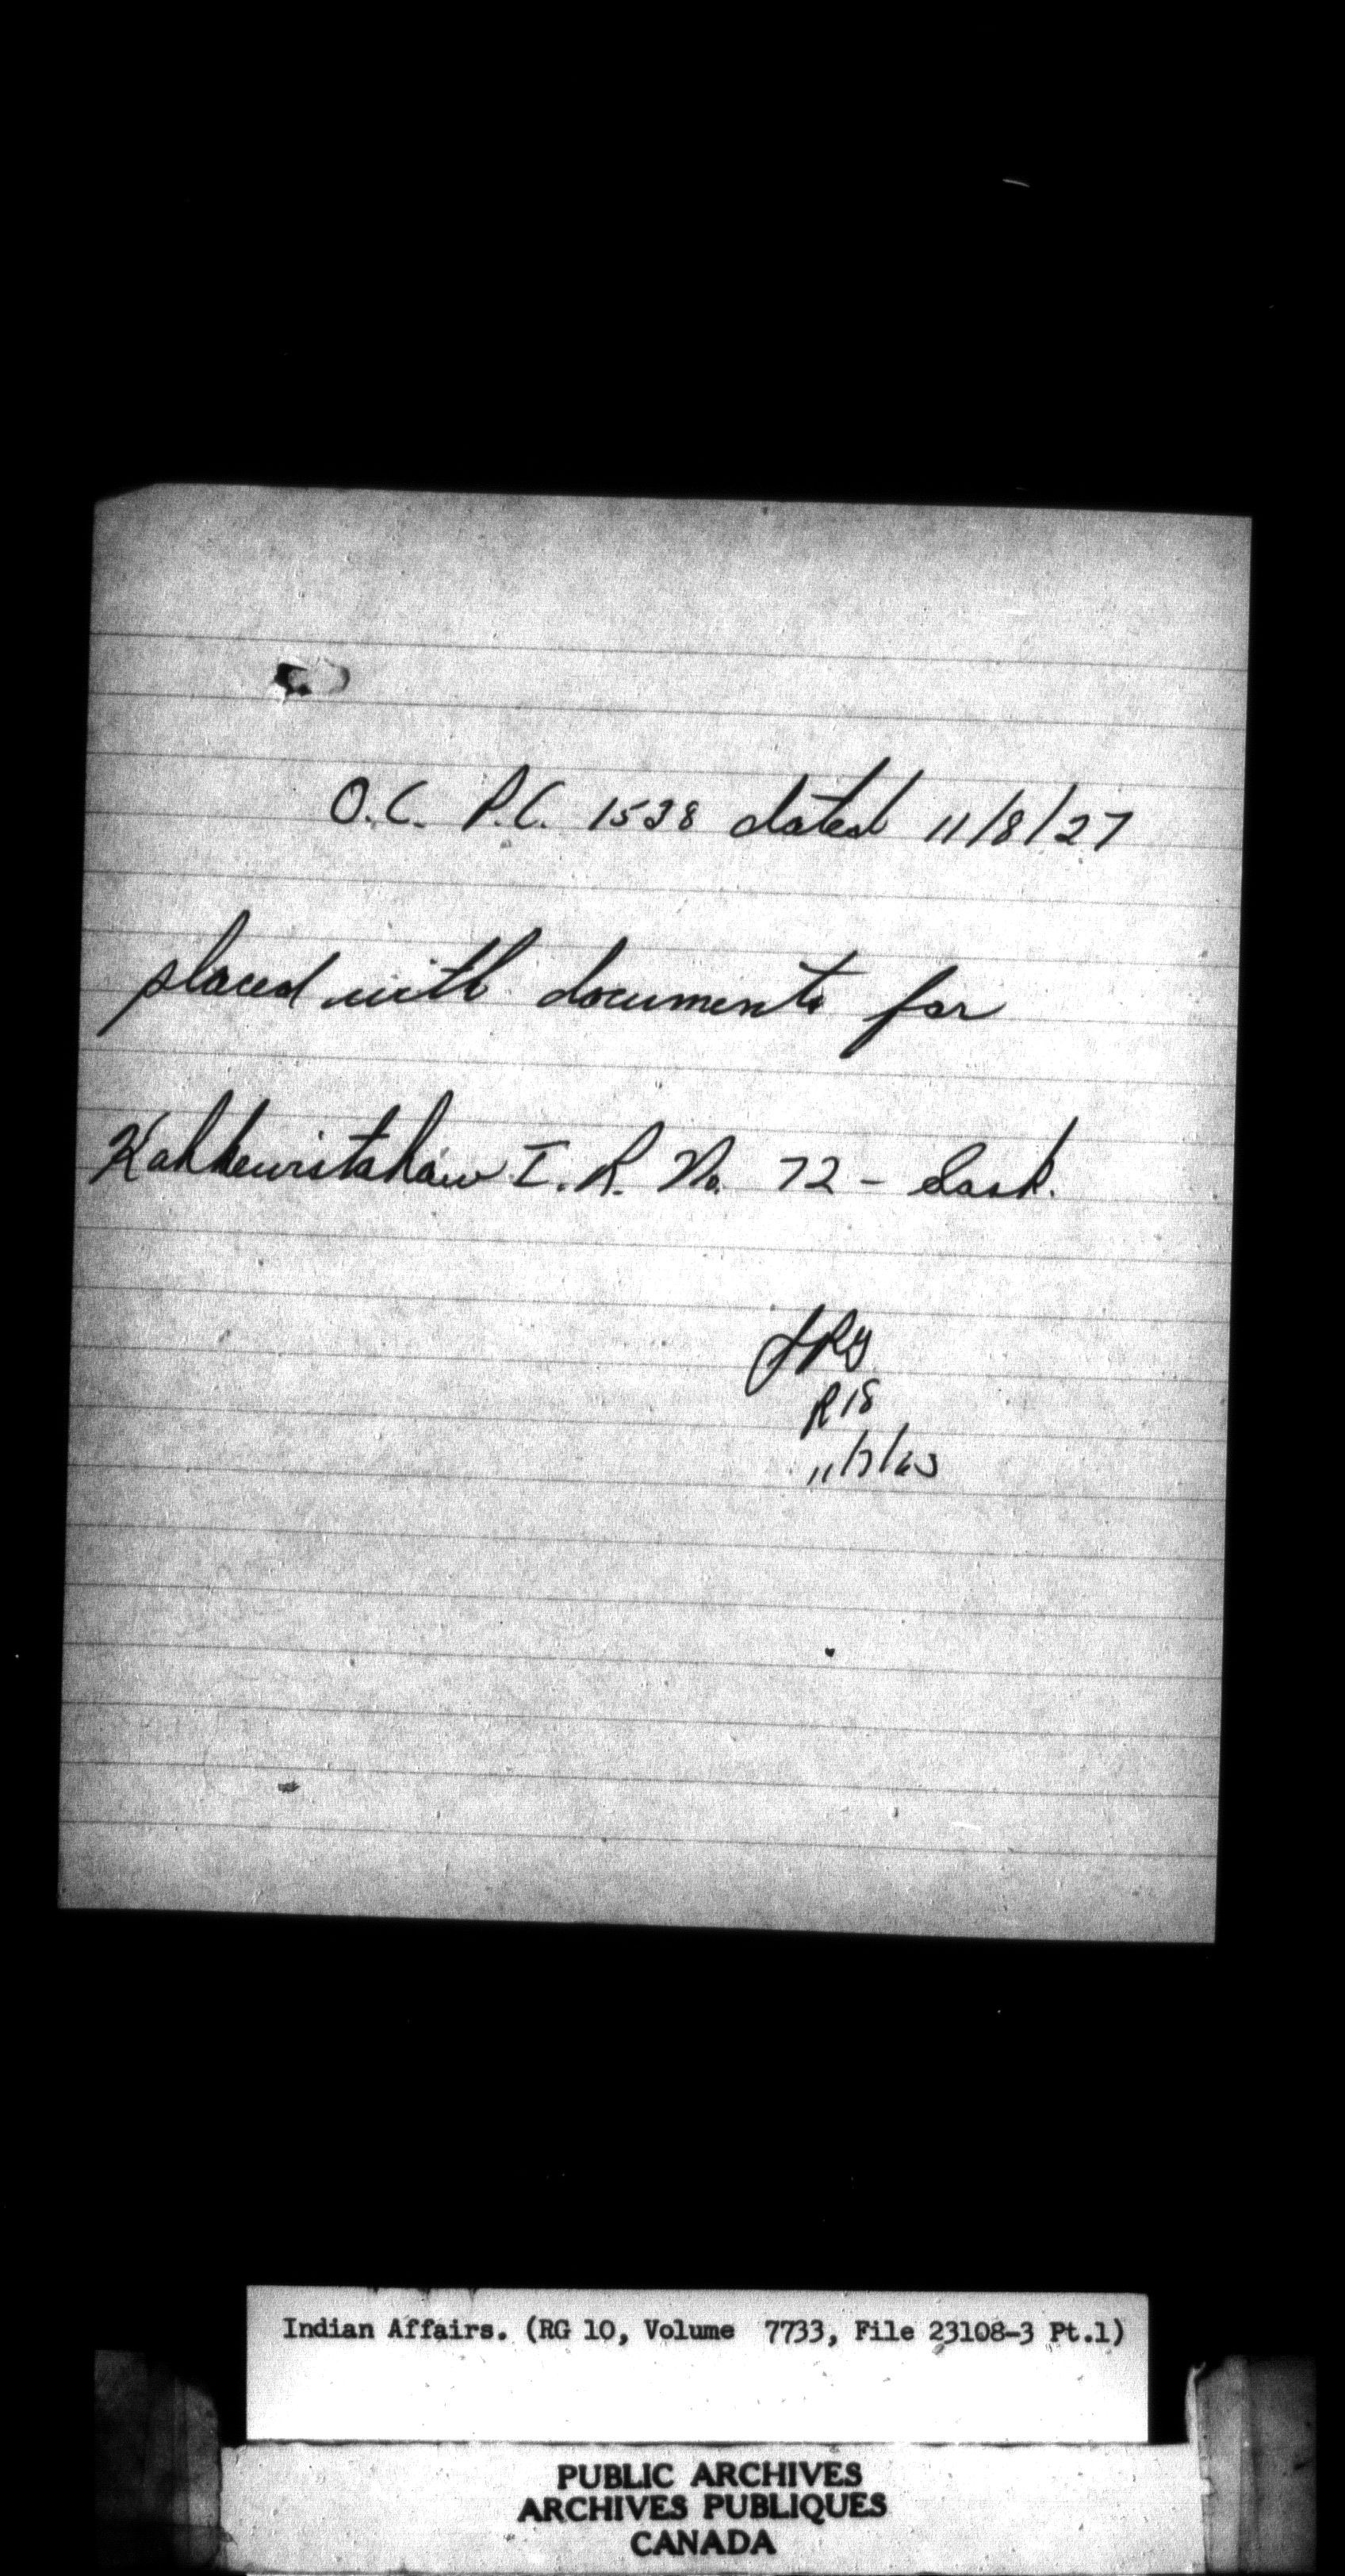 O.C. P.C. 1538 dated 11/8/27
placed with documents for
Kahkewistahaw I.R. No. 72 - Sask.
R18
Indian Affairs. (RG 10, Volume 7733, File 23108-3 Pt.1)
PUBLIC ARCHIVES
ARCHIVES PUBLIQUES
CANADA